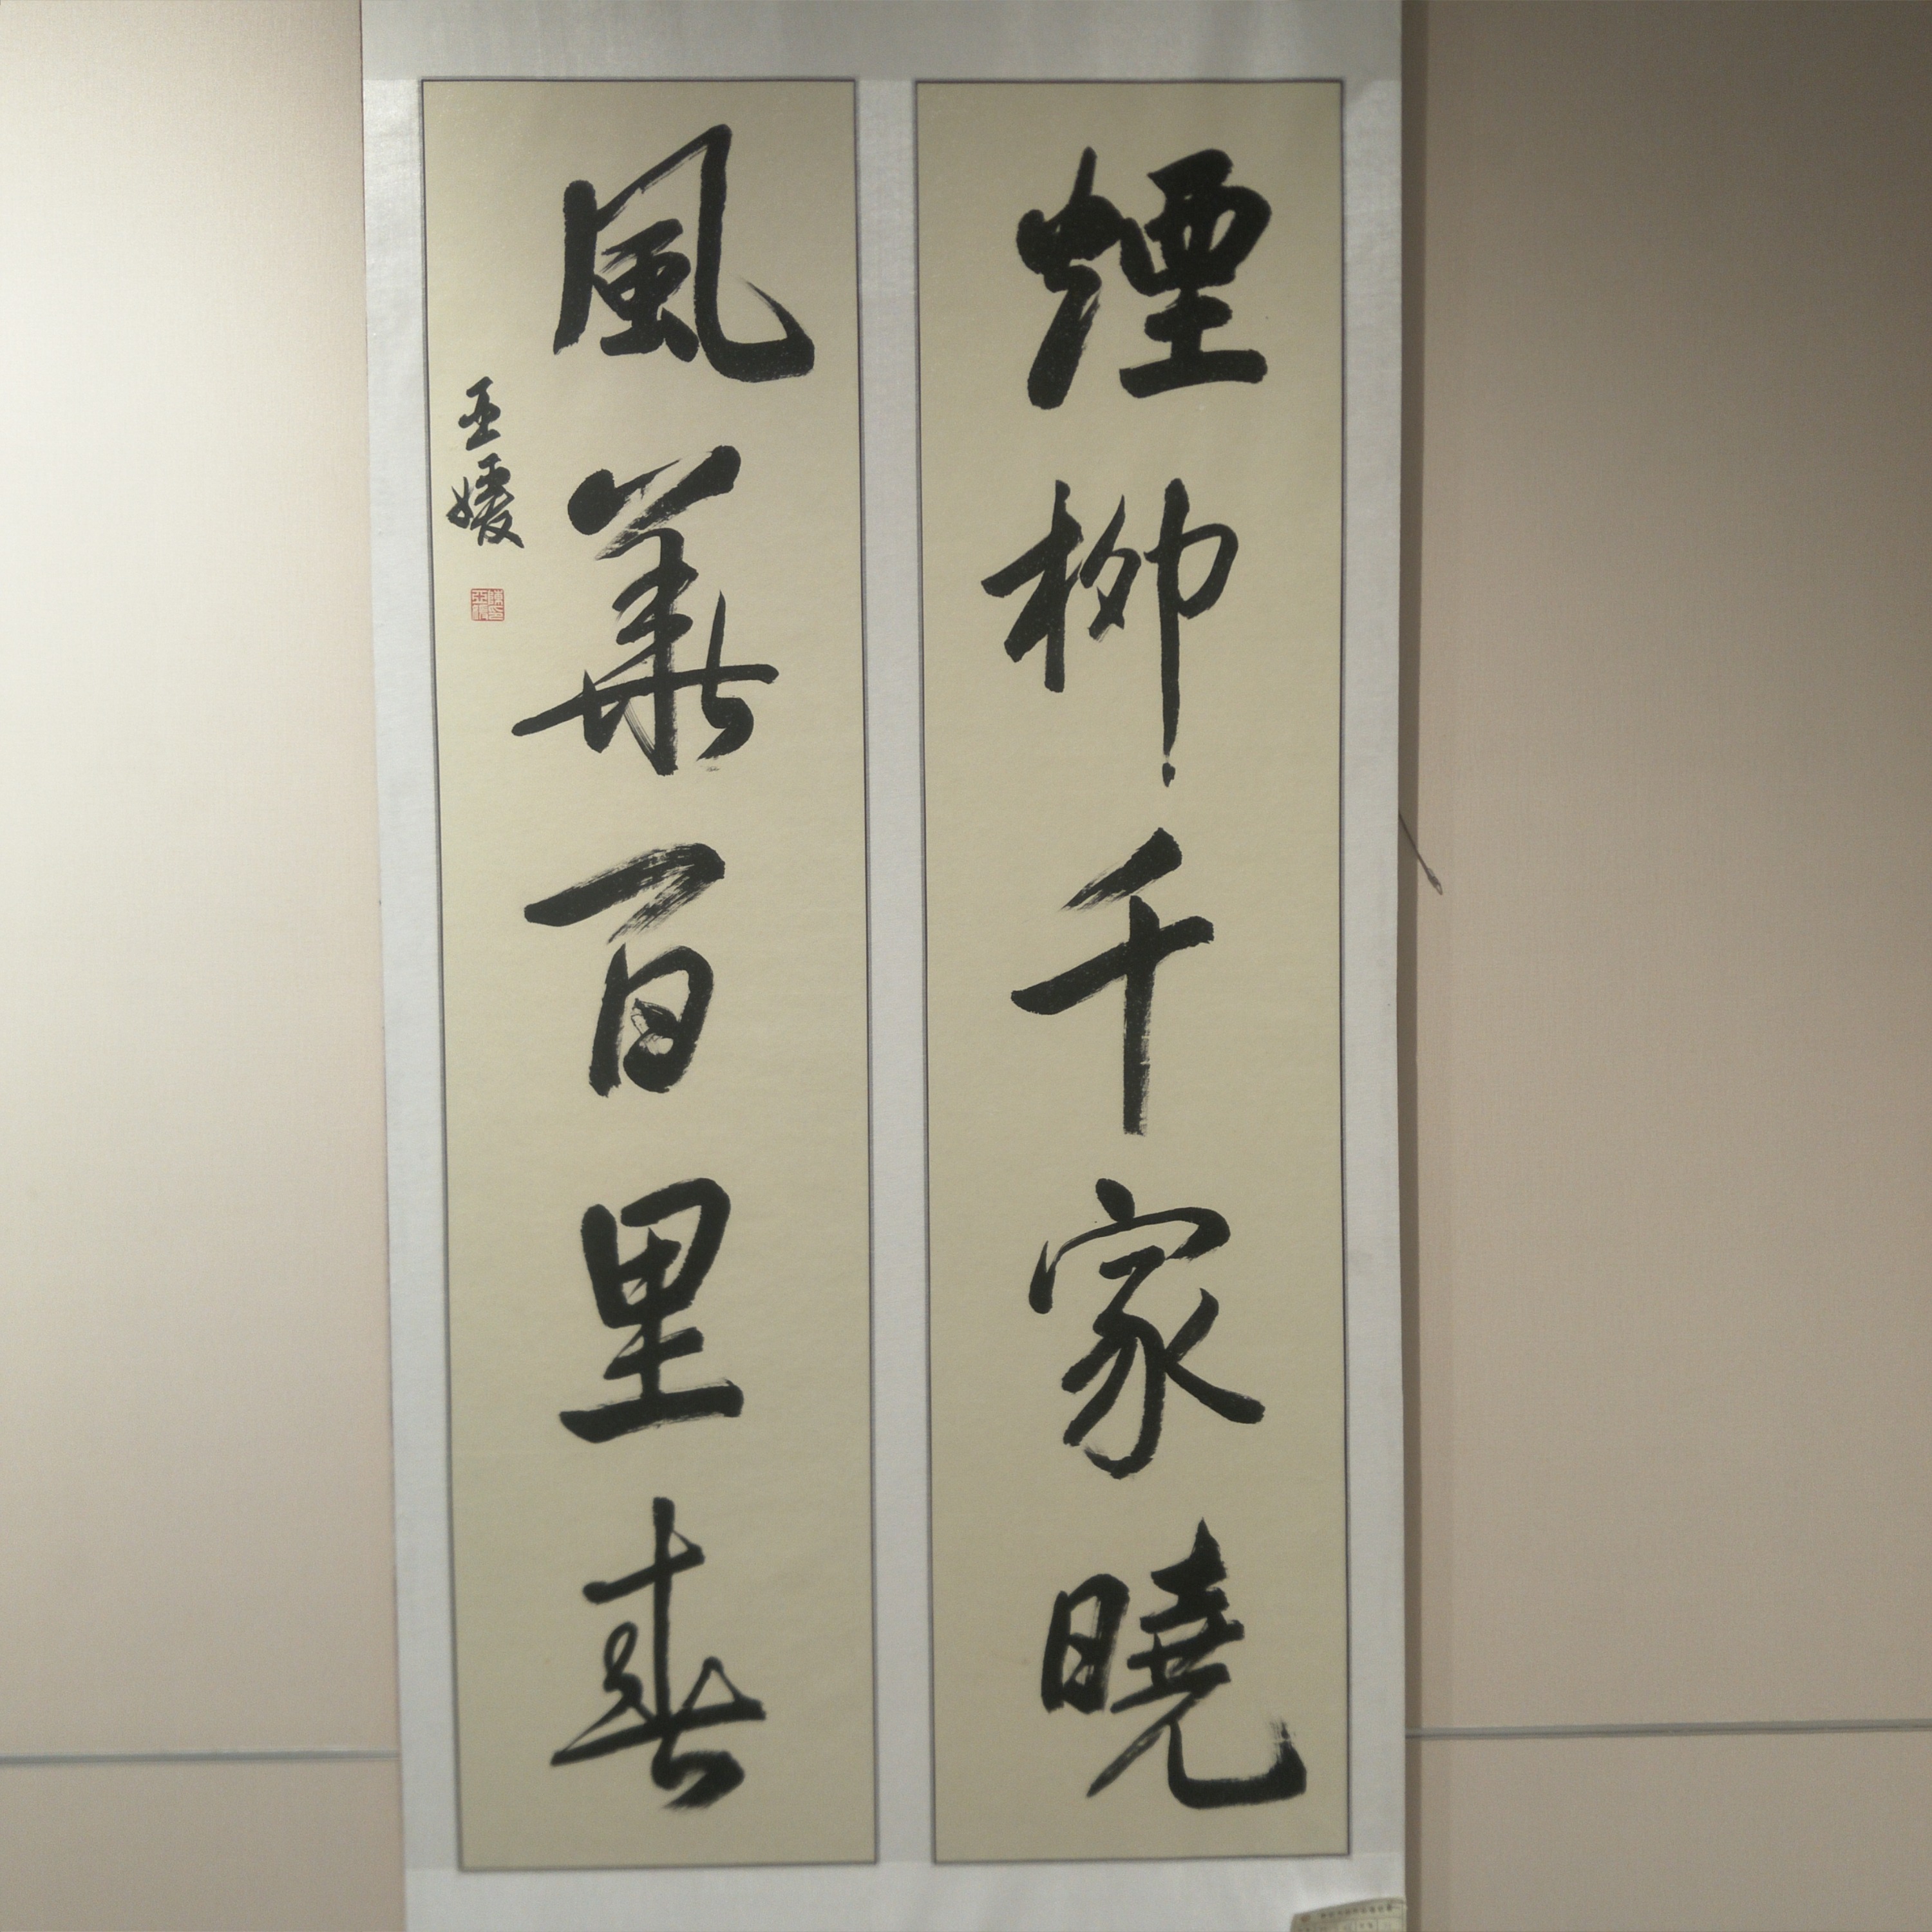 煙柳千家曉
風華百里春
亚媛